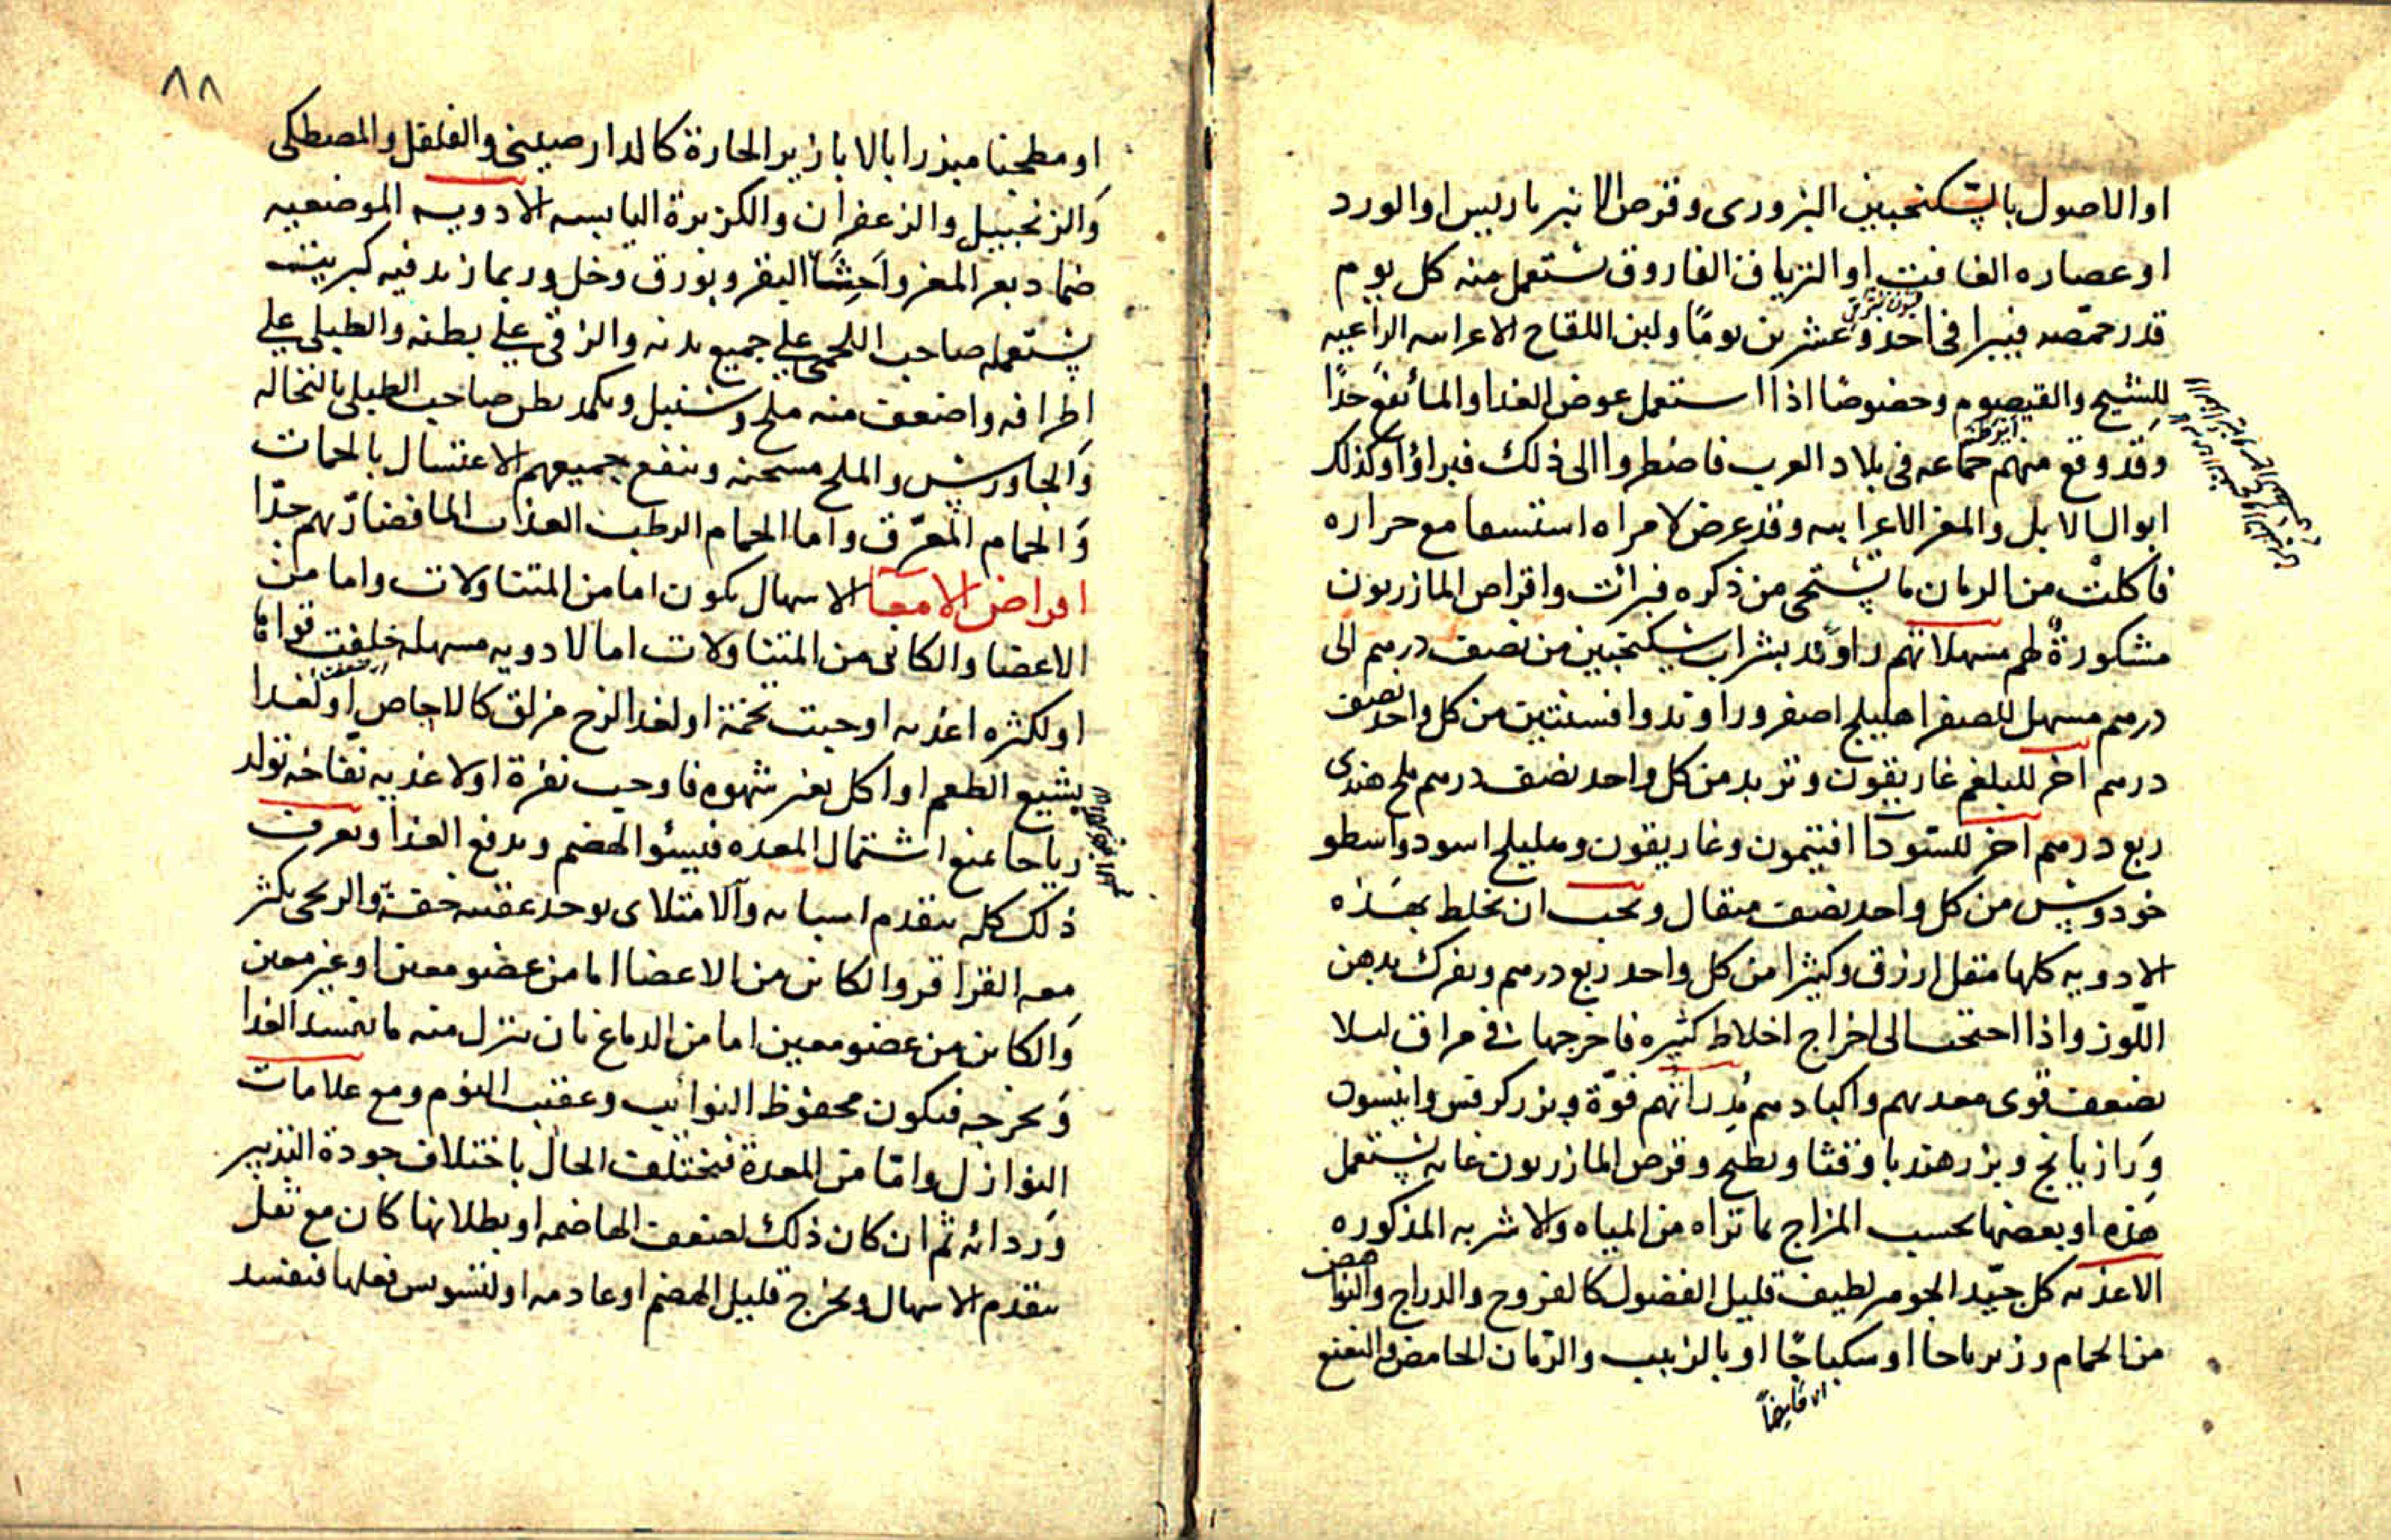 او الاصول بالسكنجبين البزورى وقرص الانبرباريس او الورد
او عصاره الغافت او الترياق الفاروق تستعمل منه كل يوم
قدر حمصه فيبرا فى احد وعشرين يومًا ولبن اللقاح الاعرابيه الراعيه
للشيح والقيصوم وخصوصًا اذا استعمل عوض الغدا والما نفع جدًا
وقد وقع منهم جماعه فى بلاد العرب فاضطروا الى ذلك فبراؤا وكذلك
ابوال الابل والمعز الاعرابيه وقد عرض لامراه استسقا مع حراره
فاكلت من الرمان ما يستحى من ذكره فبرات واقراص المازريون
مشكورة لهم مسهلاتهم راوند بشراب سكنجبين من نصف درهم الى
درهم مسهل للصفرا هليلج اصفر وراوند وافسنتين من كل واحد نصف
درهم آخر للبلغم غاريقون وتربد من كل واحد نصف درهم ملح هندى
ربع درهم آخر للسودا افتيمون وغاريقون وهليلج اسود واسطو
خودوس من كل واحد نصف مثقال ويجب ان يخلط بهذه
الادويه كلها مقل ازرق وكثيرا من كل واحد ربع درهم ويفرك بدهن
اللوز واذا احتجت الى اخراج اخلاط كثيره فاخرجها فى مرات ليلا
يضعف قوى معدهم واكبادهم مدراتهم فوّة وبزر كرفس وانيسون
ورازيانج وبزر هندبا وقثا وبطيخ وقرص المازريون غايه يستعمل
هذه او بعضها بحسب المزاج بما تراه من المياه والاشربه المذكوره
الاغذيه كل جيّد الجوهر لطيف قليل الفضول كالفروج والدراج والنواهض
من الحمام وزيرباجا او سكباجًا او بالزبيب والرمان الحامض والنعنع
٨٨
او مطجنا مبزرا بالابازير الحارة كالدارصينى والفلفل والمصطكى
والزنجبيل والزعفران والكزبرة اليابسه الادويه الموضعيه
ضماد بعر المعز واحثا البقر وبورق وخل وربما زيد فيه كبريت
يستعمله صاحب اللحمى على جميع بدنه والزقى على بطنه والطبلى على
اطرافه واضعف منه ملح وسنبل ويكمد بطن صاحب الطبلى بالنخاله
والجاورس والملح مسخنه وينفع جميعهم الاغتسال بالحمات
والحمام المعرّق واما الحمام الرطب العذاب الما فضارّ بهم جدّا
امراض الامعا الاسهال يكون اما من المتناولات واما من
الاعضا والكائن من المتناولات اما لادويه مسهله خلفت قواها
او لكثره اغذيه اوجبت تخمة او لغدا لزج مزلق كالاجاص او لغدا
بشيع الطعم او اكل بغير شهوه فاوجب نفرة او لاغذيه نفاخه تولد
رياحا تمنع اشتمال المعده فيسئو الهضم ويدفع الغذا ويعرف
ذلك كله بتقدم اسبابه والامتلاى يوجد عقيبه خفة والريحى يكثر
معه القراقر والكائن من الاعضا اما من عضو معين او غير معين
والكائن من عضو معين اما من الدماغ بان ينزل منه ما يفسد الغدا
ويخرجه فيكون محفوظ النوائب وعقيب النوم ومع علامات
النوازل واما من المعدة فيختلف الحال باختلاف جودة التدبير
وردائه ثم ان كان ذلك لضعف الهاضمه او بطلانها كان مع ثقل
يتقدم الاسهال ويخرج قليل الهضم او عادمه او لتشوش فعلها فيفسد